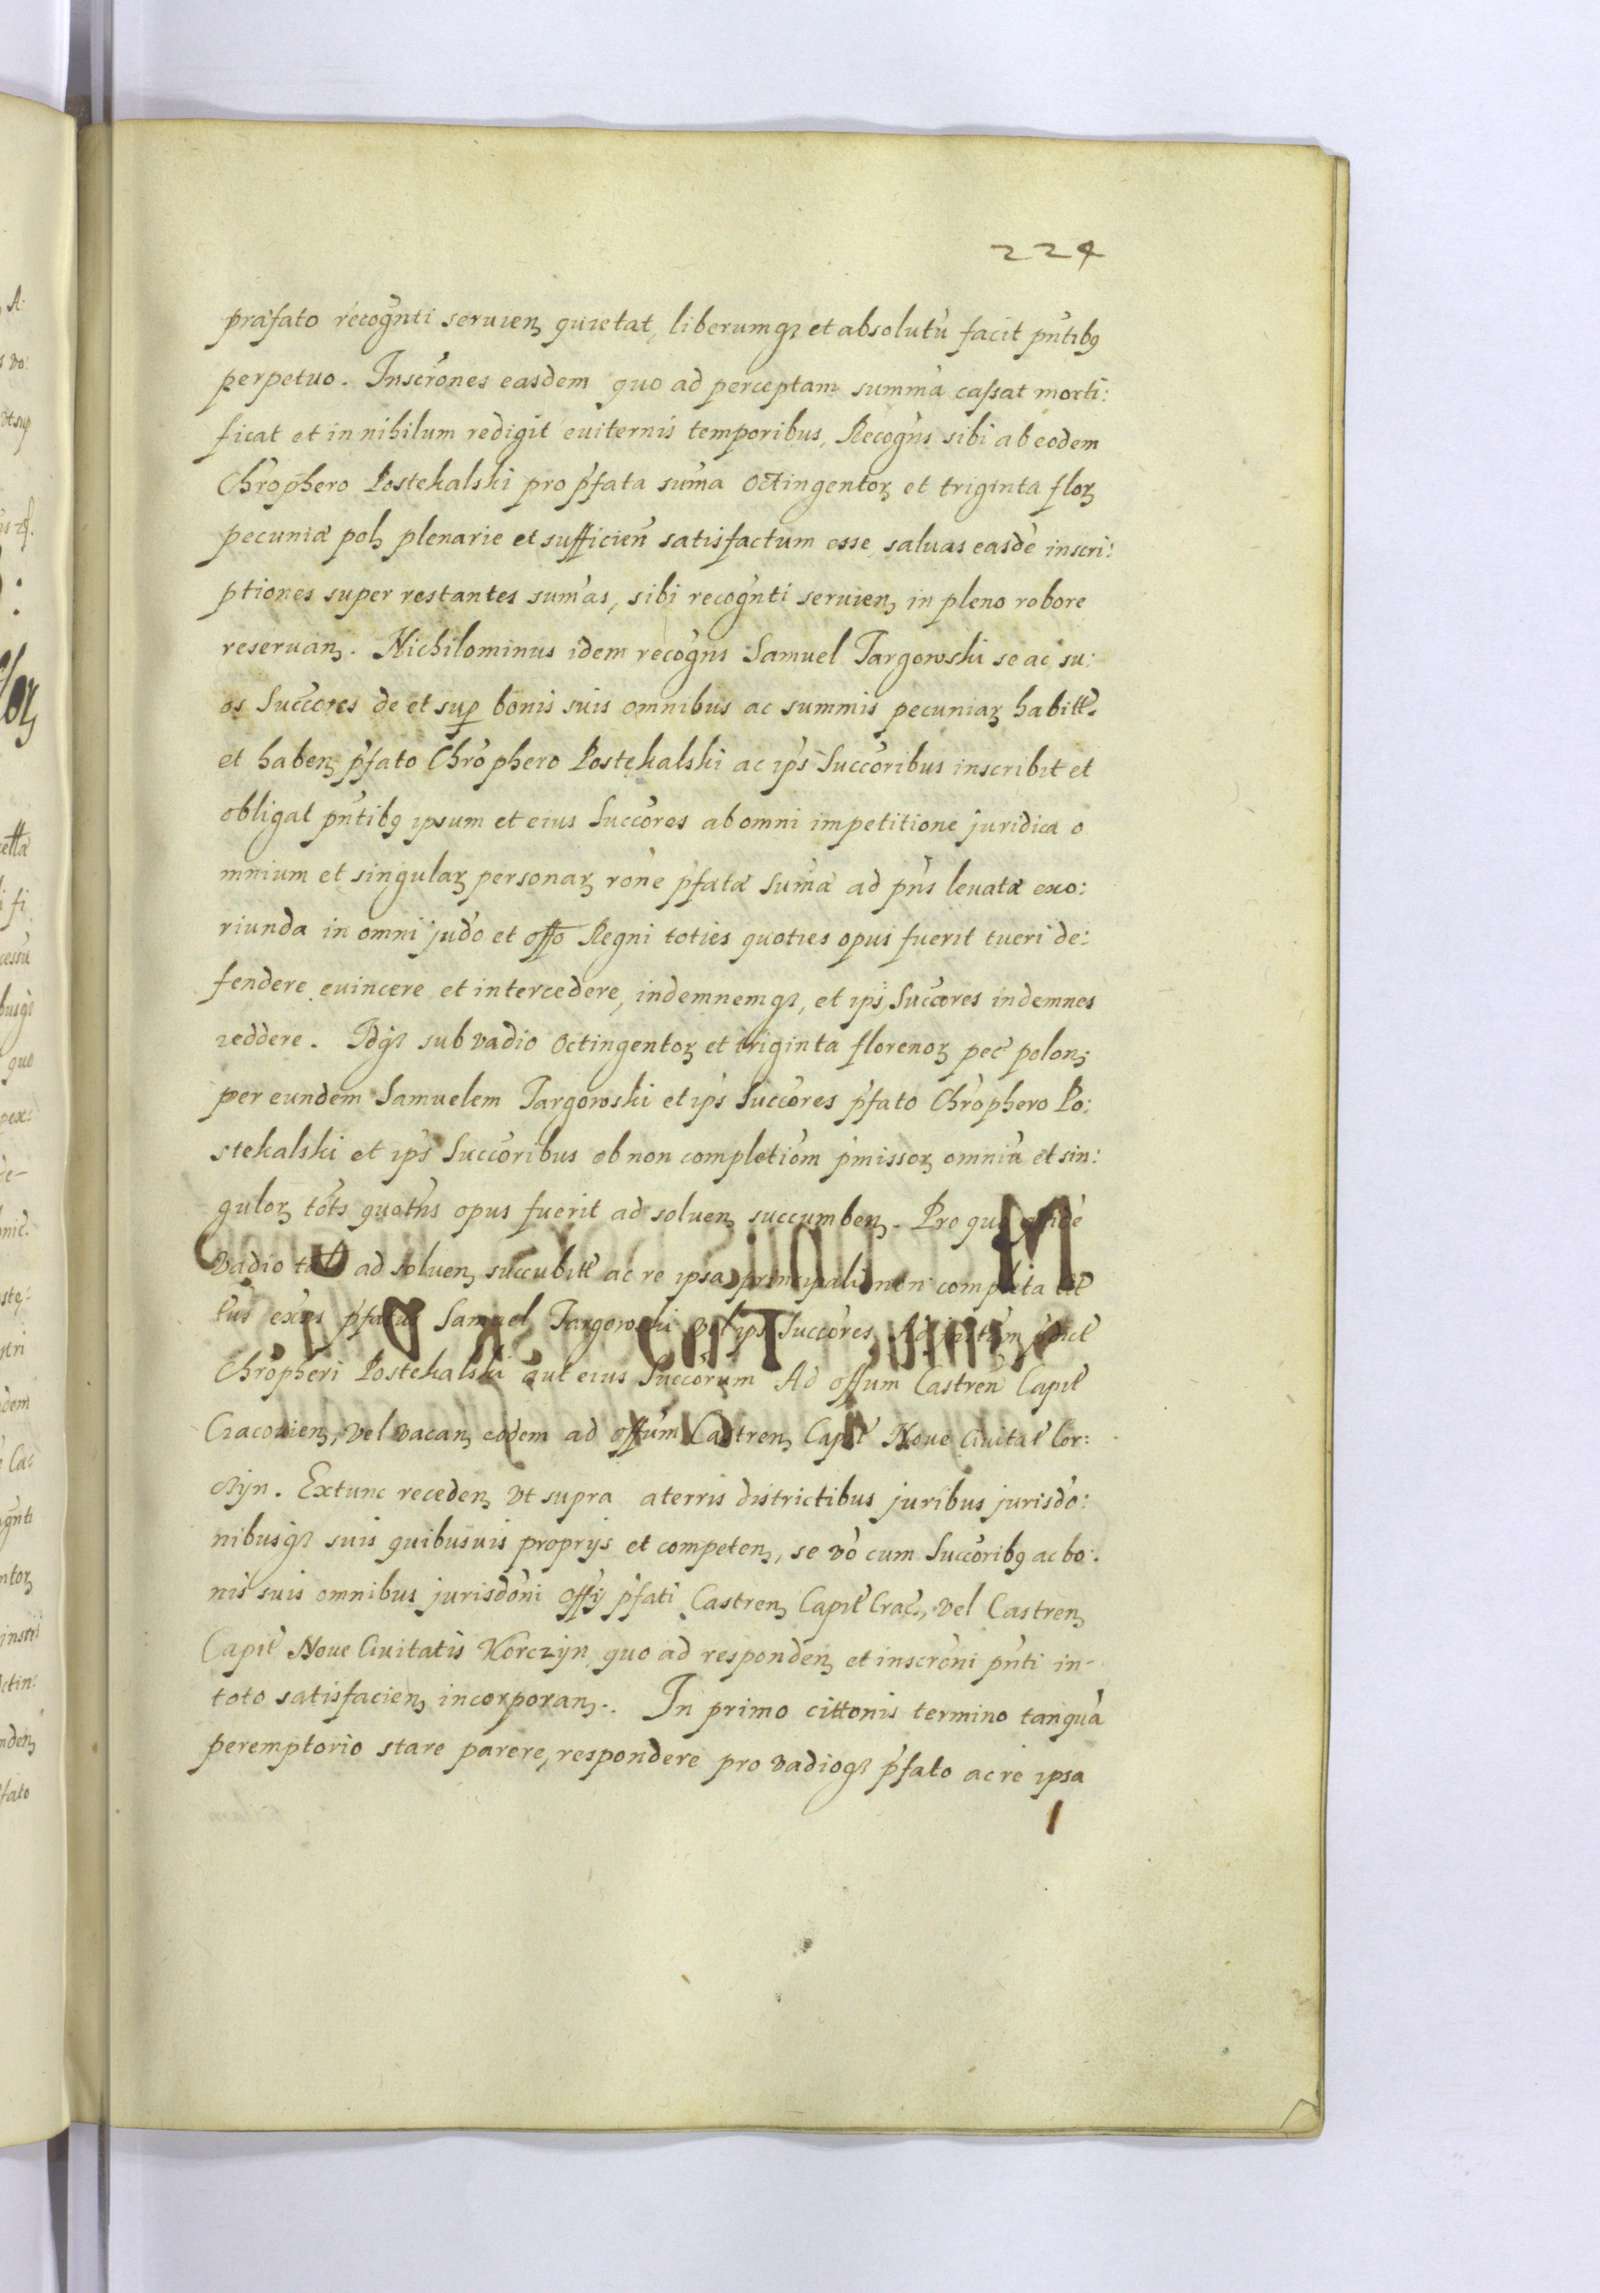 224
præfato recogñti seruien quietat, liberumqz et absolutũ facit pñtibq
perpetuo. Inscrõnes easdem quo ad perceptam summã cassat morti:
ficat et in nihilum redigit euiternis temporibus, Recogñs sibi ab eodem
Chrõphero Postekalski pro p̃fata sum̃a Octingentoꝝ et triginta floꝝ
pecuniæ pol plenarie et sufficieñ satisfactum esse, saluas easdẽ inscri:
ptiones super restantes sum̃as, sibi recogñti seruien in pleno robore
reseruan. Nichilominus idem recogñs Samuel Targowski se ac su:
os Succõres de et sup bonis suis omnibus ac summis pecuniaꝝ habitt.
et haben p̃fato Chrõphero Postekalski ac ip̃s Succõribus inscribit et
obligat pñtibq ipsum et eius Succõres ab omni impetitione juridica o
mnium et singulaꝝ personaꝝ rõne p̃fatæ sum̃æ ad pñs leuatæ exo:
riunda in omni judõ et offõ Regni toties quoties opus fuerit tueri de:
fendere euincere et intercedere, indemnemqz, et ip̃s Succõres indemnes
reddere. Idqz sub vadio Octingentoꝝ et triginta florenoꝝ pec̃ polon
per eundem Samuelem Targowski et ip̃s Succõres p̃fato Chrõphero Po:
stekalski et ip̃s Succõribus ob non completiõm p̃missoꝝ omniũ et sin:
guloꝝ tõts quõths opus fuerit ad soluen succumben. Pro quo
vadio ad soluen succubitt ac re ipsa principali non completa
tus p̃fatus Samuel Targowski vel ip̃s Succõres Ad
Chrõpheri Postekalski aut eius Succõrum Ad offum Castreñ Capit̃
Cracouien, vel vacan eodem ad offum Castren Capit̃ Noue Ciuitat̃ Cor:
czyn. Extunc receden vt supra a terris districtibus juribus jurisdõ:
nibusqz suis quibusuis proprijs et competen, se võ cum Succõribq ac bo:
nis suis omnibus jurisdõni offij p̃fati Castren Capit̃ Crac̃, vel Castren
Capit̃ Noue Ciuitatis Korczyn quo ad responden et inscrõni pñti in-
toto satisfacien incorporan. In primo cittonis termino tanquã
peremptorio stare parere, respondere pro vadioqz p̃fato ac re ipsa